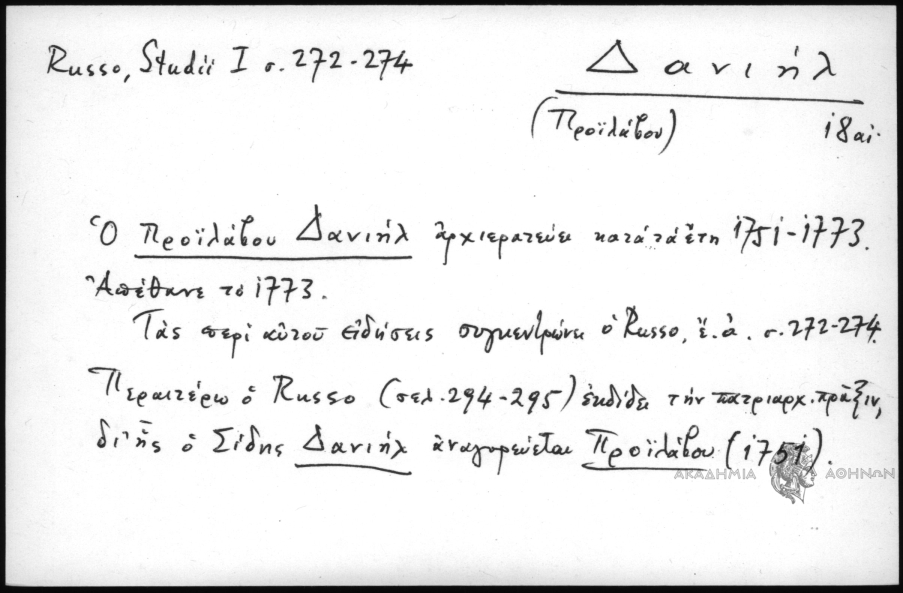 Russo, Studii I σ. 272-274
Δανιήλ
(Προϊλάβου) 18 αἰ.
Ὁ Προϊλάβου Δανιήλ ἀρχιερατεύει κατά τά ἔτη 1751-1773.
Ἀπέθανε τό 1773.
Τάς περί αὐτοῦ εἰδήσεις συγκεντρώνει ὁ Russo, ἔ.ἀ. σ. 272-274.
Περαιτέρω ὁ Russo (σελ. 294-295) ἐκδίδει τήν πατριαρχ. πρᾶξιν,
δι' ἧς ὁ Σίδης Δανιήλ ἀναγορεύεται Προϊλάβου (1751).
ΑΚΑΔΗΜΙΑ ΑΘΗΝΩΝ